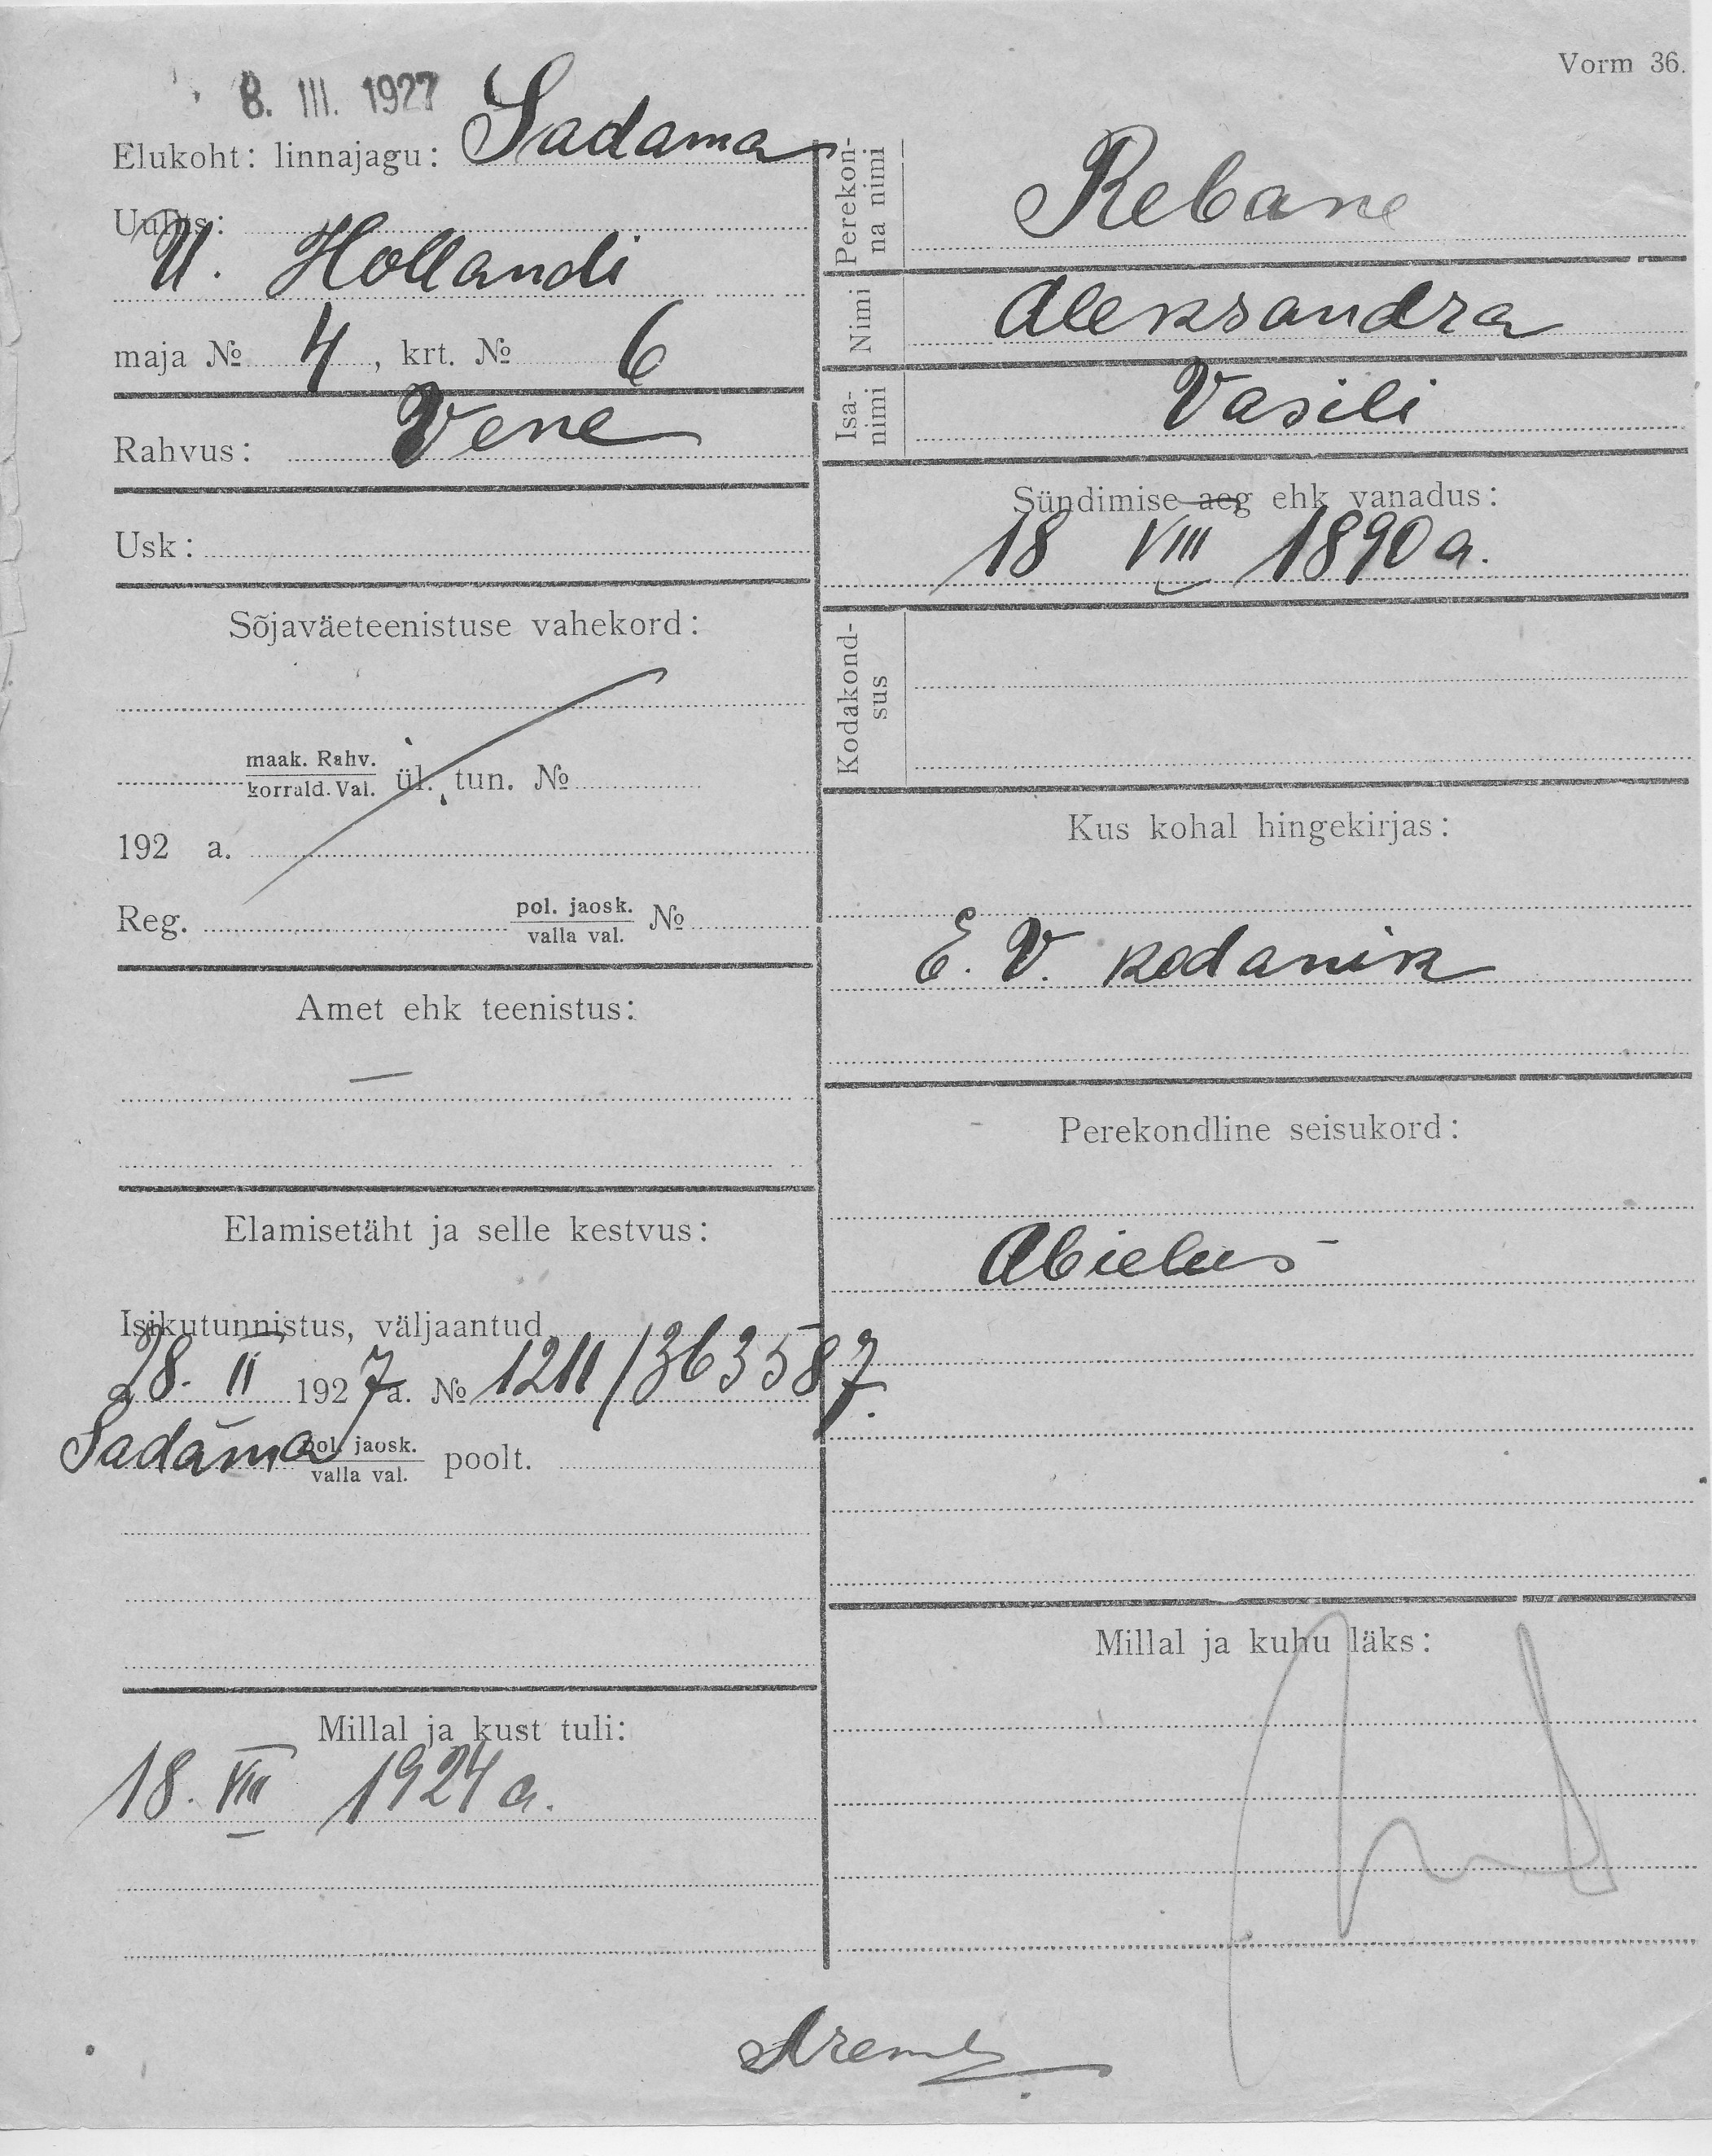 Vorm 36.
8. III. 1927
Elukoht: linnajagu: Sadama
Uulits:
U. Hollandi
maja № 4, krt. № 6
Rahvus: Vene
Usk:
Sõjaväeteenistuse vahekord:
maak. Rahv.
korrald. Val. ül. tun. №
192 a.
Reg. pol. jaosk. №
valla val.
Amet ehk teenistus:
—
Elamisetäht ja selle kestvus:
Isikutunnistus, väljaantud
28. II 1927 a. № 1211/363587.
Sadama pol. jaosk. poolt.
valla val.
Millal ja kust tuli:
18. VIII 1924 a.
Perekon-
na nimi
Rebane
Nimi Aleksandra
Isa-
nimi
Vasili
Sündimise aeg ehk vanadus:
18 VIII 1890 a.
Kodakond-
sus
Kus kohal hingekirjas:
E. V. kodanik
Perekondline seisukord:
Abielus
Millal ja kuhu läks: